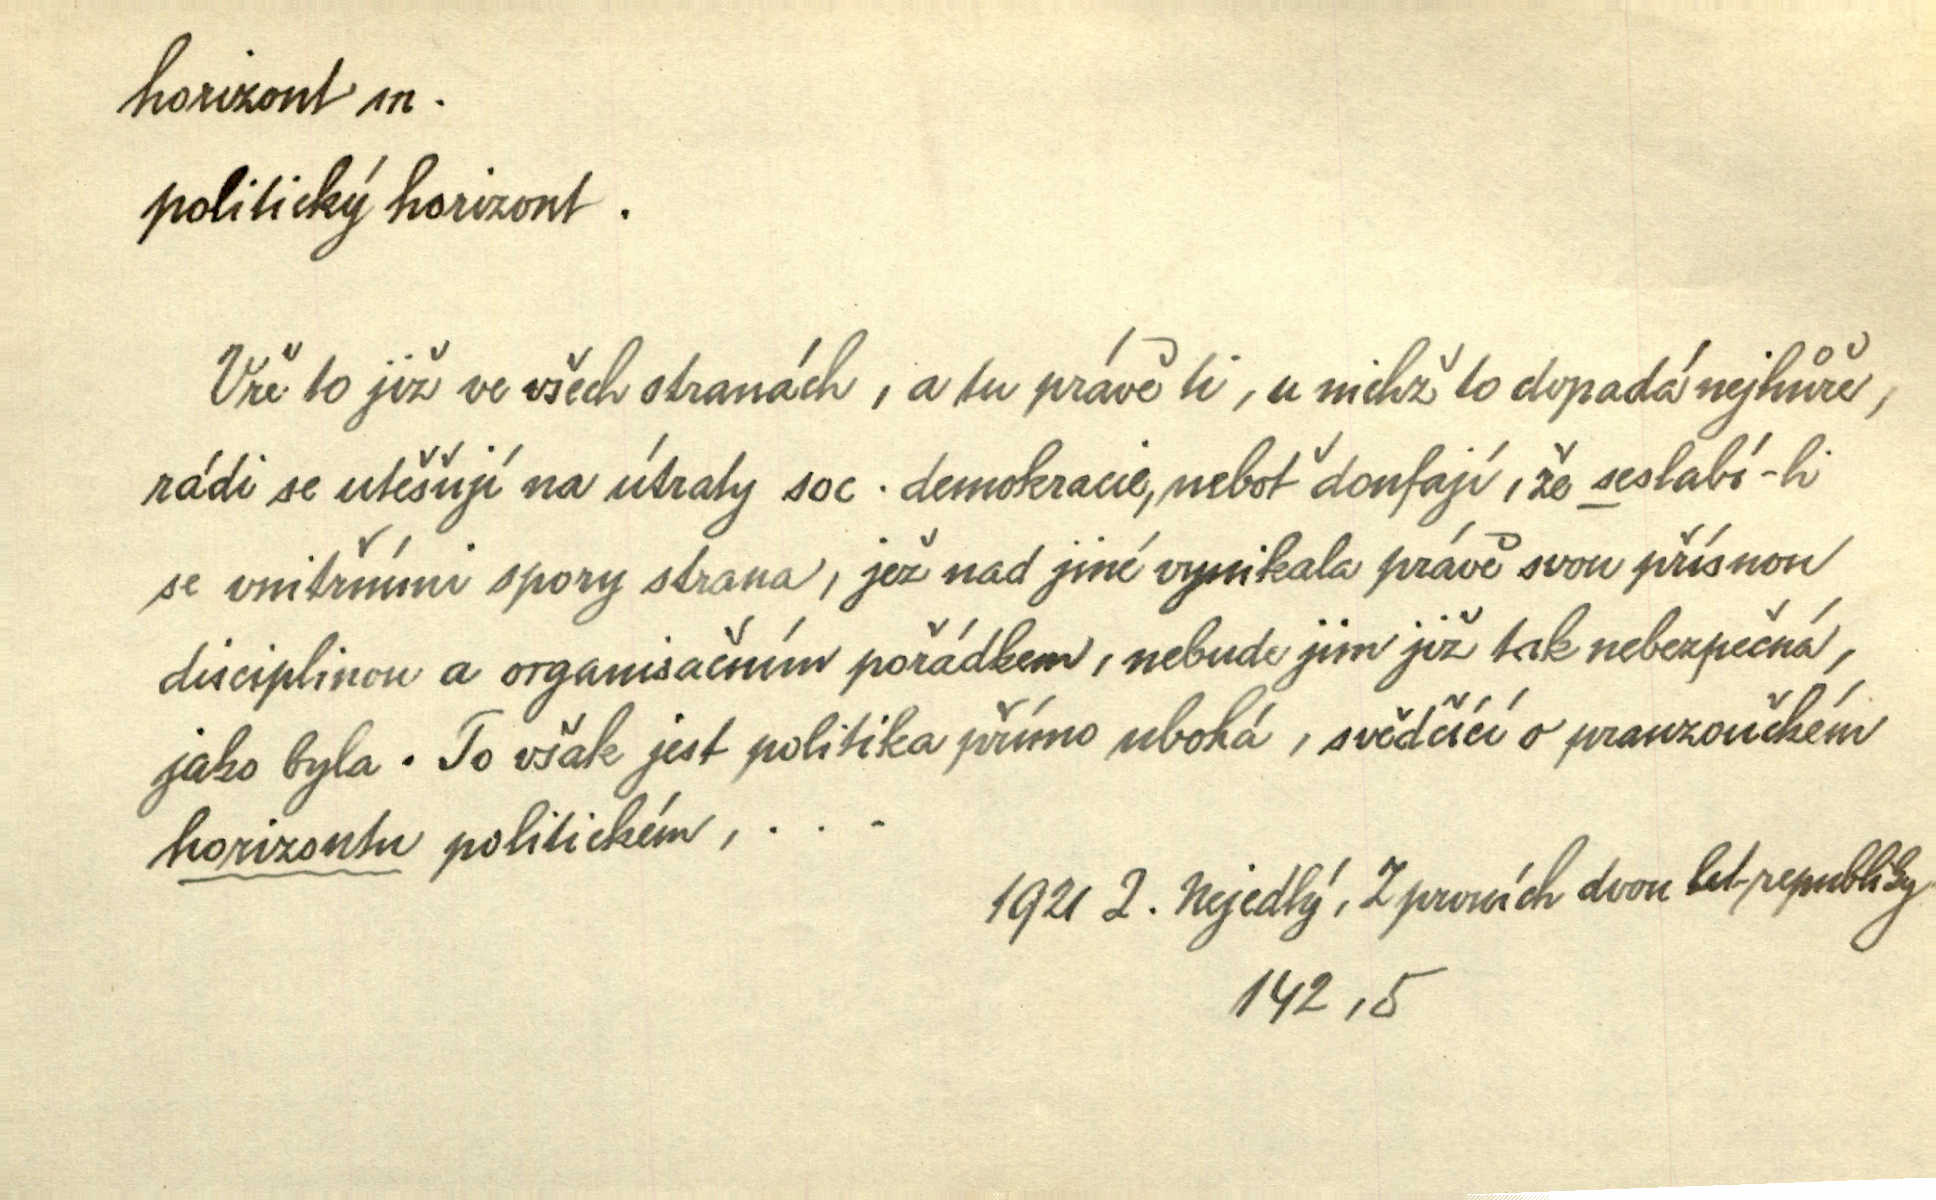 horizont m.
politický horizont.
Vře to již ve všech stranách, a tu právě ti, u nichž to dopadá nejhůře,
rádi se utěšují na útraty soc. demokracie, neboť doufají, že seslabí-li
se vnitřními spory strana, jež nad jiné vynikala právě svou přísnou
disciplinou a organisačním pořádkem, nebude jim již tak nebezpečná,
jako byla. To však jest politika přímo ubohá, svědčící o pranzoučkém
horizontu politickém, . . -
1921 Z. Nejedlý, Z prvních dvou let republiky
142,5